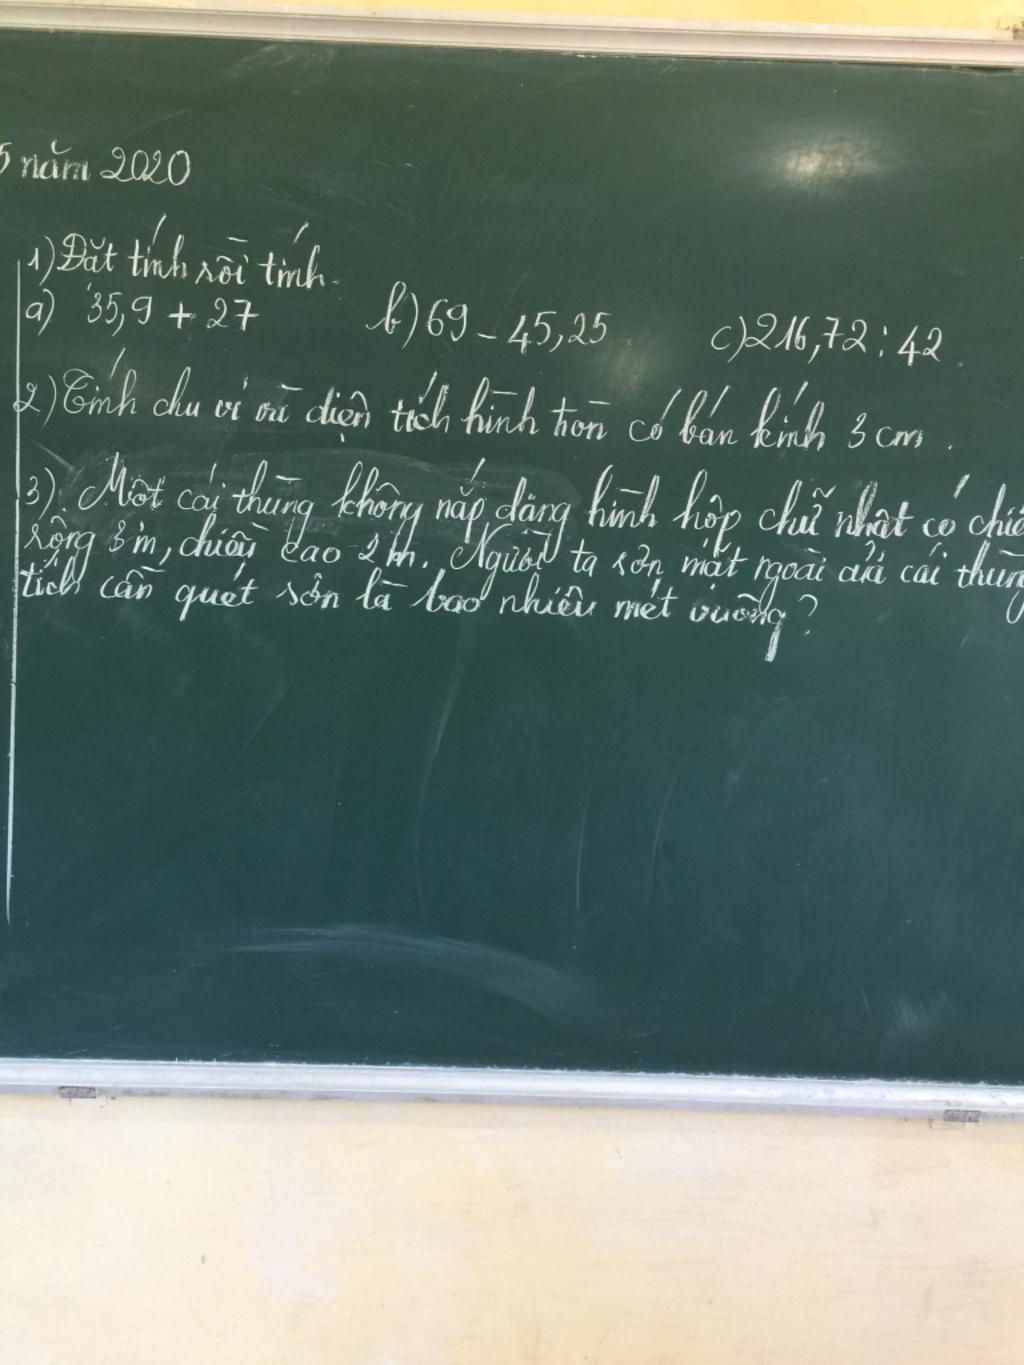 5 năm 2020
1) Đặt tính rồi tính.
a) 35,9 + 27 b) 69 - 45,25 c) 216,72 : 42
2) Tính chu vi và diện tích hình tròn có bán kính 3 cm.
3). Một cái thùng không nắp dạng hình hộp chữ nhật có
rộng 3 m, chiều cao 2 m. Người ta sơn mặt ngoài của cái thùng
tích cần quét sơn là bao nhiêu mét vuông?